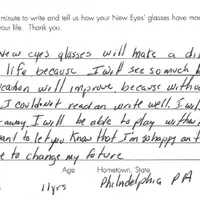 minute to write and tell us how your New Eyes' glasses have ma
our life. Thank you.
New eyes glasses will make a di
life because I will see so much
cation will improve because witho
I couldn't read or write well. I wil
away I will be able to play withou
ant to let you know that I'm so happy an t
e to change my future
Age Hometown, State
11yrs Philadelphia PA